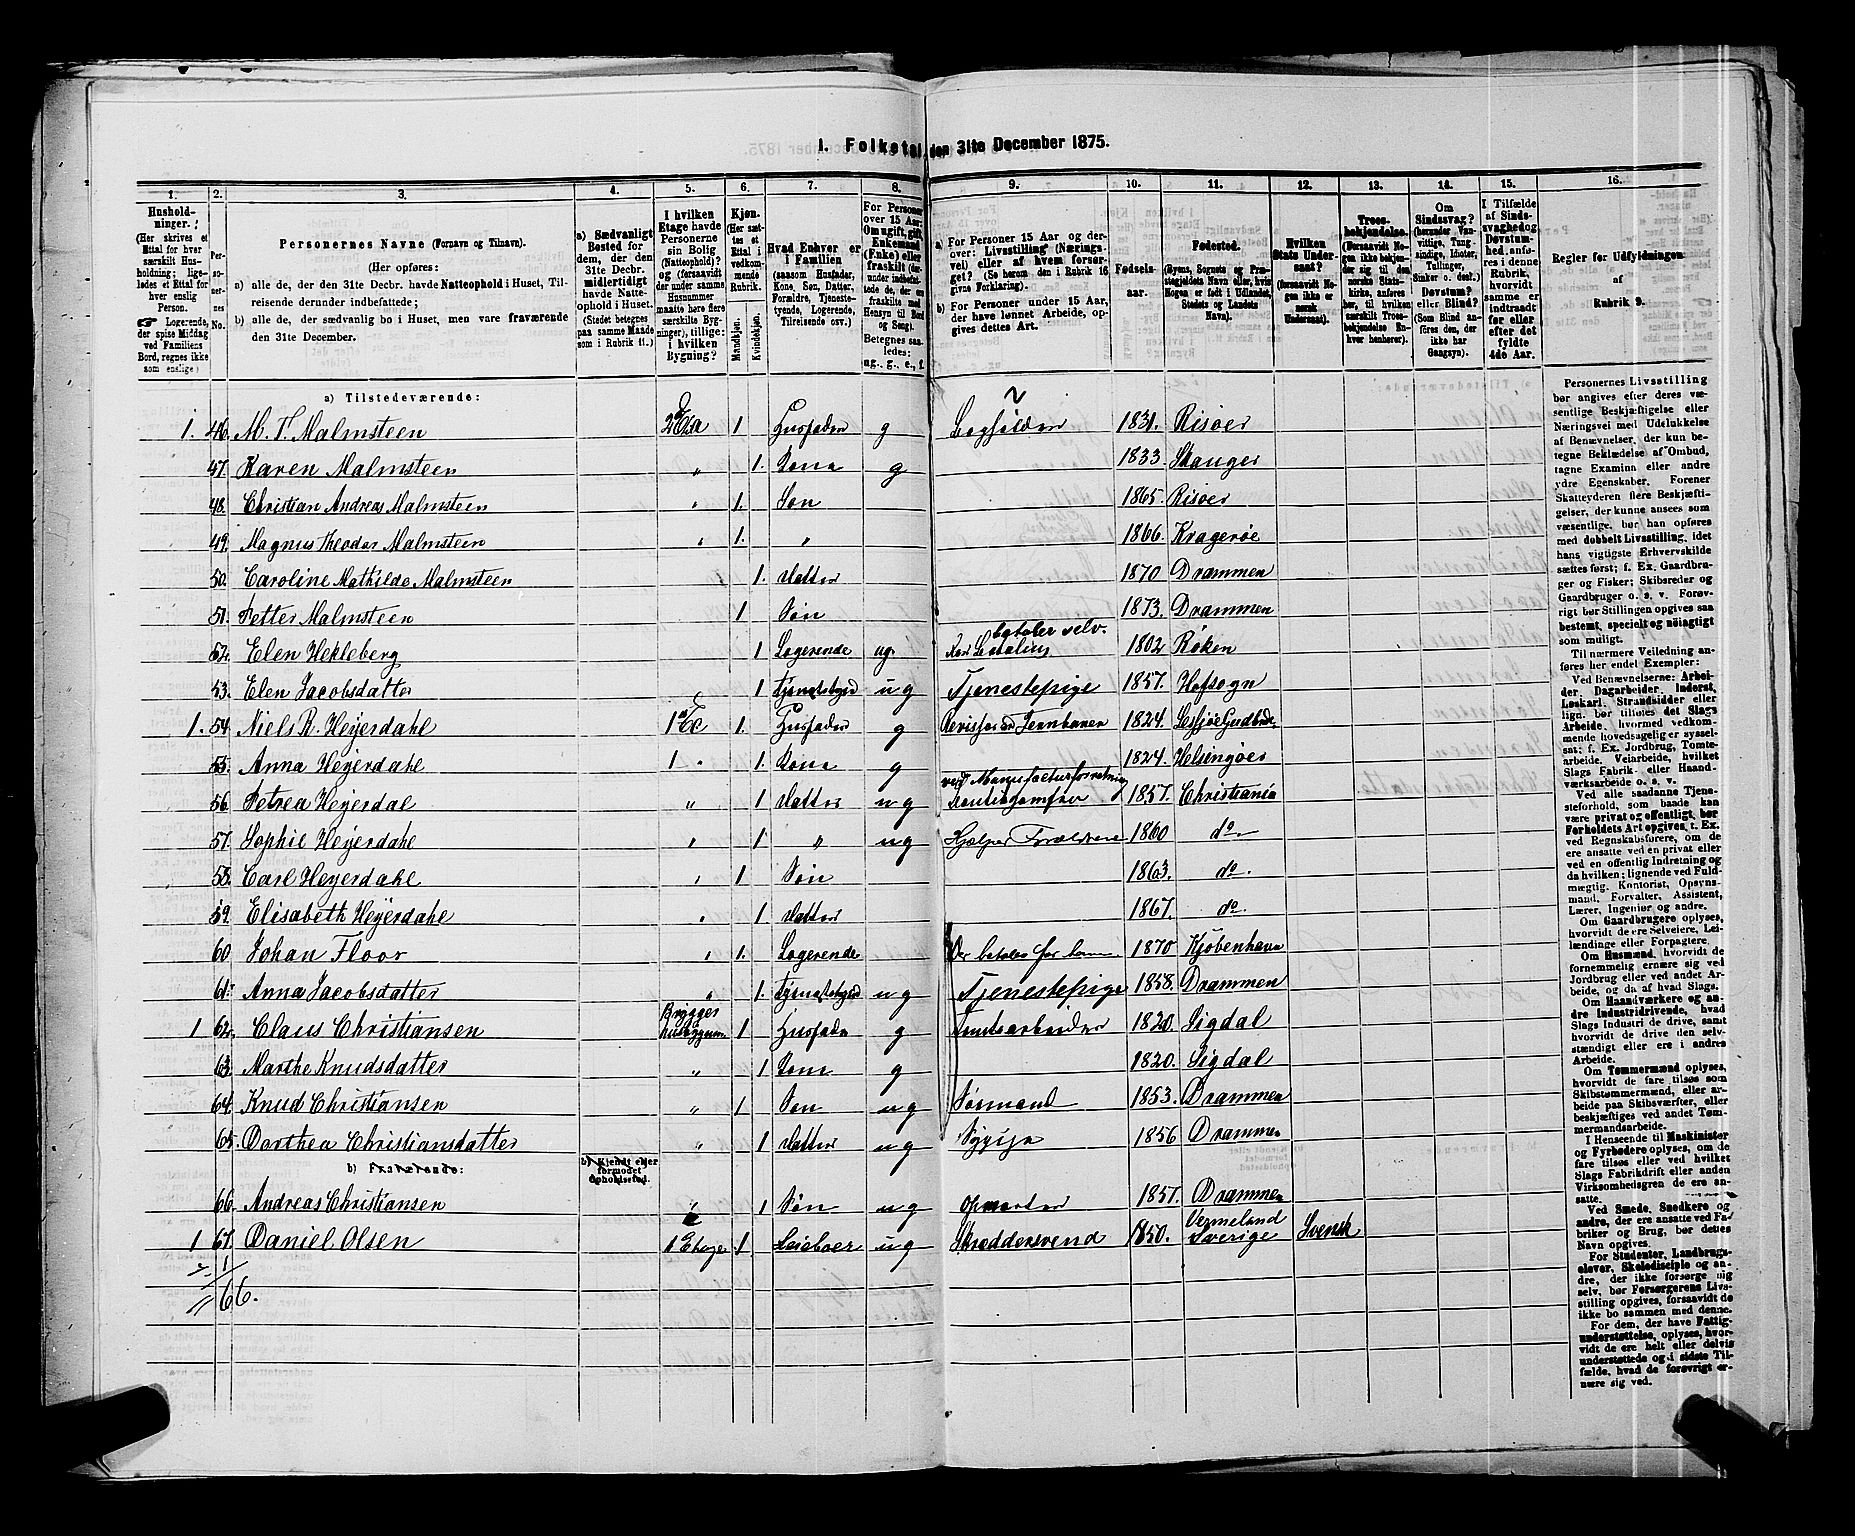 1. Folketal den 31te December 1875.
1. 2. 3. 4. 5. 6. 7. 8. 9. 10. 11. 12. 13. 14. 15. 16.
Husholdninger.
(Her skrives et Ettal for hver særskilt Husholdning; ligeledes et Ettal for hver enslig Person.
☞ Logerende, der spise Middag ved Familiens Bord, regnes ikke som enslige)
Personernes No.
Personernes Navne (Fornavn og Tilnavn).
(Her opføres:
a) alle de, der den 31te Decbr. havde Natteophold i Huset, Tilreisende derunder indbefattede;
b) alle de, der sædvanlig bo i Huset, men vare fraværende den 31te December.
a) Sædvanligt Bosted for dem, der den 31te Decbr. midlertidigt havde Natteophold i Huset. (Stedet betegnes paa samme Maade som i Rubrik 11.)
I hvilken Etage havde Personerne sin Bolig (Natteophold)? og (forsaavidt der under samme Husnummer maatte høre flere særskilte Bygninger), tillige: i hvilken Bygning?
Kjøn. (Her sættes et Ettal i vedkommende Rubrik.
Mandkjøn. Kvindekjøn.
Hvad Enhver er i Familien
(saasom Husfader, Kone, Søn, Datter, Forældre, Tjenestetyende, Logerende, Tilreisende osv.)
For Personer over 15 Aar: Om ugift, gift, Enkemand (Enke) eller fraskilt (derunder indbefattede, de, der ere fraskilte med Hensyn til Bord og Seng). Betegnes saaledes: ug., g., e., f.
a) For Personer 15 Aar og derover: Livsstilling (Næringsvei) eller af hvem forsørget? (Se herom den i Rubrik 16 givne Forklaring).
b) For Personer under 15 Aar, der have lønnet Arbeide, opgives dettes Art.
Fødselsaar.
Fødested.
(Byens, Sognets og Præstegjeldets Navn eller, hvis Nogen er født i Udlandet, Stedets og Landets Navn).
Hvilken Stats Undersaat?
(forsaavidt Nogen ikke er norsk Undersaat).
Troesbekjendelse.
(Forsaavidt Nogen ikke bekjender sig til den norske Statskirke, anføres her, til hvilket særskilt Troesbekjendelse Enhver henhører).
Om Sindssvag? (herunder Vanvittige, Tungsindige, Idioter, Tullinger, Sinker o. desl.). Døvstum? eller Blind? (Som Blind anføres den, der ikke har Gangsyn).
I Tilfælde af Sindssvaghed og Døvstumhed, anføres i denne Rubrik, hvorvidt samme er indtraadt før eller efter det fyldte 4de Aar.
Regler for Udfyldningen af Rubrik 9.
a) Tilstedeværende:
1. 46. M. T. Malmsteen 2 Eta 1 Husfader g 1831. Risøer
47. Karen Malmsteen „ 1. Kone g 1833
48. Christian Andreas Malmsteen „ 1. Søn 1865 Risøer
49. Magnus Theodor Malmsteen „ 1. „ 1866. Kragerøe
50. Caroline Mathilde Malmsteen 1. Datter 1870 Drammen
51. Petter Malmsteen 1 Søn 1873. Drammen
52. Elen Hekleberg 1 Logerende ug. betaler selv. 1802 Røken
53. Elen Jacobsdatter 1 ug Tjenestepige 1857. Hofsogn
1. 54. Niels R. Heyerdahl 1 1. Husfader g 1824.
55. Anna Heyerdahl 1 „ 1. Kone g 1824. Helsingøer
56. Petrea Heyerdal „ 1 Datter ug ved Manufacturforretning 1857. Christiania
57. Sophie Heyerdahl „ 1 „ ug Hjælper Forældrene 1860 do.
58. Carl Heyerdahl „ 1 Søn 1863. do.
59. Elisabeth Heyerdahl „ 1. Datter 1867. do.
60 Johan Floor „ 1. Logerende Der betales for ham 1870 Kjøbenhavn
61. Anna Jacobsdatter „ 1. ug Tjenestepige 1858. Drammen
1 62. Claus Christiansen Bryggerhusbygnin. 1 Husfader g 1820. Sigdal
63. Marthe Knudsdatter „ 1 Kone g 1820. Sigdal
64. Knud Christiansen „ 1 Søn ug Sømand 1853. Drammen
65. Dorthea Christiansdatter „ 1 Datter ug Sypige 1856 Drammen
b) Fraværende:
b) Kjendt eller formodet Opholdssted.
66. Andreas Christiansen „ 1 Søn ug 1857. Drammen
1 67. Daniel Olsen 1 Etage 1 Leieboer ug Skræddersvend 1850. Vermeland Sverige Svensk
1
66.
Personernes Livsstilling bør angives efter deres væsentlige Beskjæftigelse eller Næringsvei med Udelukkelse af Benævnelser, der kun betegne Beklædelse af Ombud, tagne Examina eller andre ydre Egenskaber. Forener Skatteyderen flere Beskjæftigelser, der kunne ansees som væsentlige, bør han opføres med dobbelt Livsstilling, idet hans vigtigste Erhvervskilde sættes først; f. Ex. Gaardbruger og Fisker; Skibsreder og Gaardbruger o. s. v. Forøvrigt bør Stillingen opgives saa bestemt, specielt og nøiagtigt som muligt.
Til nærmere Veiledning anføres her endel Exempler:
Ved Benævnelserne: Arbeider, Dagarbeider, Inderst, Løskarl, Strandsidder eller lign. bør tilføies det Slags Arbeide, hvormed vedkommende hovedsagelig er sysselsat; f. Ex. Jordbrug, Tomtearbeide, Veiarbeide, hvilket Slags Fabrik- eller Haandværksarbeide o. s. v.
Ved alle saadanne Tjenesteforhold, som baade kan være privat og offentligt, bør Forholdets Art opgives, t. Ex. ved Regnskabsførere, om de ere ansatte ved en privat eller ved en offentlig Indretning og da hvilken; lignende ved Fuldmægtig, Kontorist, Opsynsmand, Forvalter, Assistent, Lærer, Ingeniør og andre.
Om Gaardbrugere oplyses, hvorvidt de ere Selveiere, Leilændinge eller Forpagtere.
Om Husmænd, hvorvidt de fornemmelig ernære sig ved Jordbrug eller ved andet Arbeide, og da af hvad Slags.
Om Haandværkere og andre Industridrivende, hvad Slags Industri de drive, samt hvorvidt de drive den selvstændigt eller ere i andres Arbeide.
Om Tømmermænd oplyses, hvorvidt de fare tilsøs som Skibstømmermænd, eller arbeide paa Skibsværfter, eller beskjæftiges ved andet Tømmermandsarbeide.
I Henseende til Maskinister og Fyrbødere oplyses, om de fare tilsøs eller ved hvilket Slags Fabrikdrift eller anden Virksomhedsgren de ere ansatte.
Ved Smede, Snedkere og andre, der ere ansatte ved Fabriker og Brug, bør dettes Navn opgives.
For Studenter, Landbrugselever, Skoledisciple og andre, der ikke forsørge sig selv, bør Forsørgerens Livsstilling opgives, forsaavidt de ikke bo sammen med denne.
For dem, der have Fattigunderstøttelse, oplyses, hvorvidt de ere helt eller delvis understøttede og i sidste Tilfælde, hvad de forøvrigt ernære sig ved.